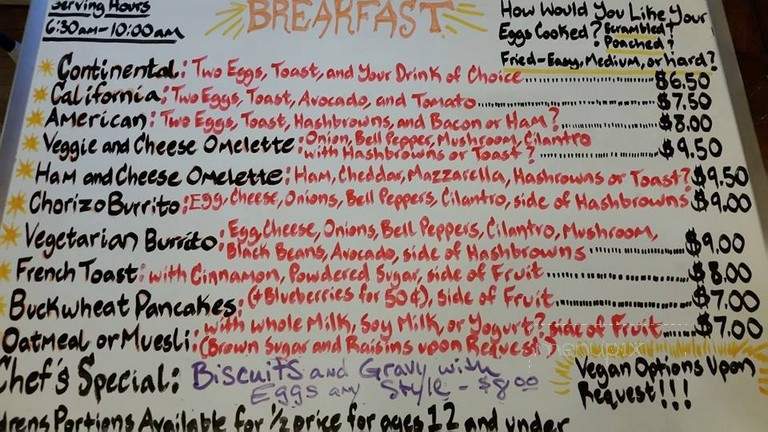 Serving Hours
6:30am-10:00am
BREAKFAST
How Would You Like Your
Eggs Cooked? Scrambled?
Poached?
Fried-Easy, Medium, or Hard?
Continental: Two Eggs, Toast, and Your Drink of Choice $6.50
California: Two Eggs, Toast, Avocado, and Tomato $7.50
American: Two Eggs, Toast, Hashbrowns, and Bacon or Ham? $8.00
Veggie and Cheese Omelette: Onion, Bell Pepper, Mushroom, Cilantro
with Hashbrowns or Toast? $9.50
Ham and Cheese Omelette: Ham, Cheddar, Mazzarella, Hashrowns or Toast? $9.50
Chorizo Burrito: Egg, Cheese, Onions, Bell Peppers, Cilantro, side of Hashbrowns $9.00
Vegetarian Burrito: Egg, Cheese, Onions, Bell Peppers, Cilantro, Mushroom,
Black Beans, Avocado, side of Hashbrowns $9.00
French Toast: with Cinnamon, Powdered Sugar, side of Fruit $8.00
Buckwheat Pancakes: (+Blueberries for 50¢), side of Fruit $7.00
Oatmeal or Muesli: with whole Milk, Soy Milk, or Yogurt? side of Fruit $7.00
(Brown Sugar and Raisins upon Request)
Chef's Special: Biscuits and Gravy with
Eggs any Style - $8.00
Vegan Options Upon
Request!!!
drens Portions Available for ½ price for ages 12 and under